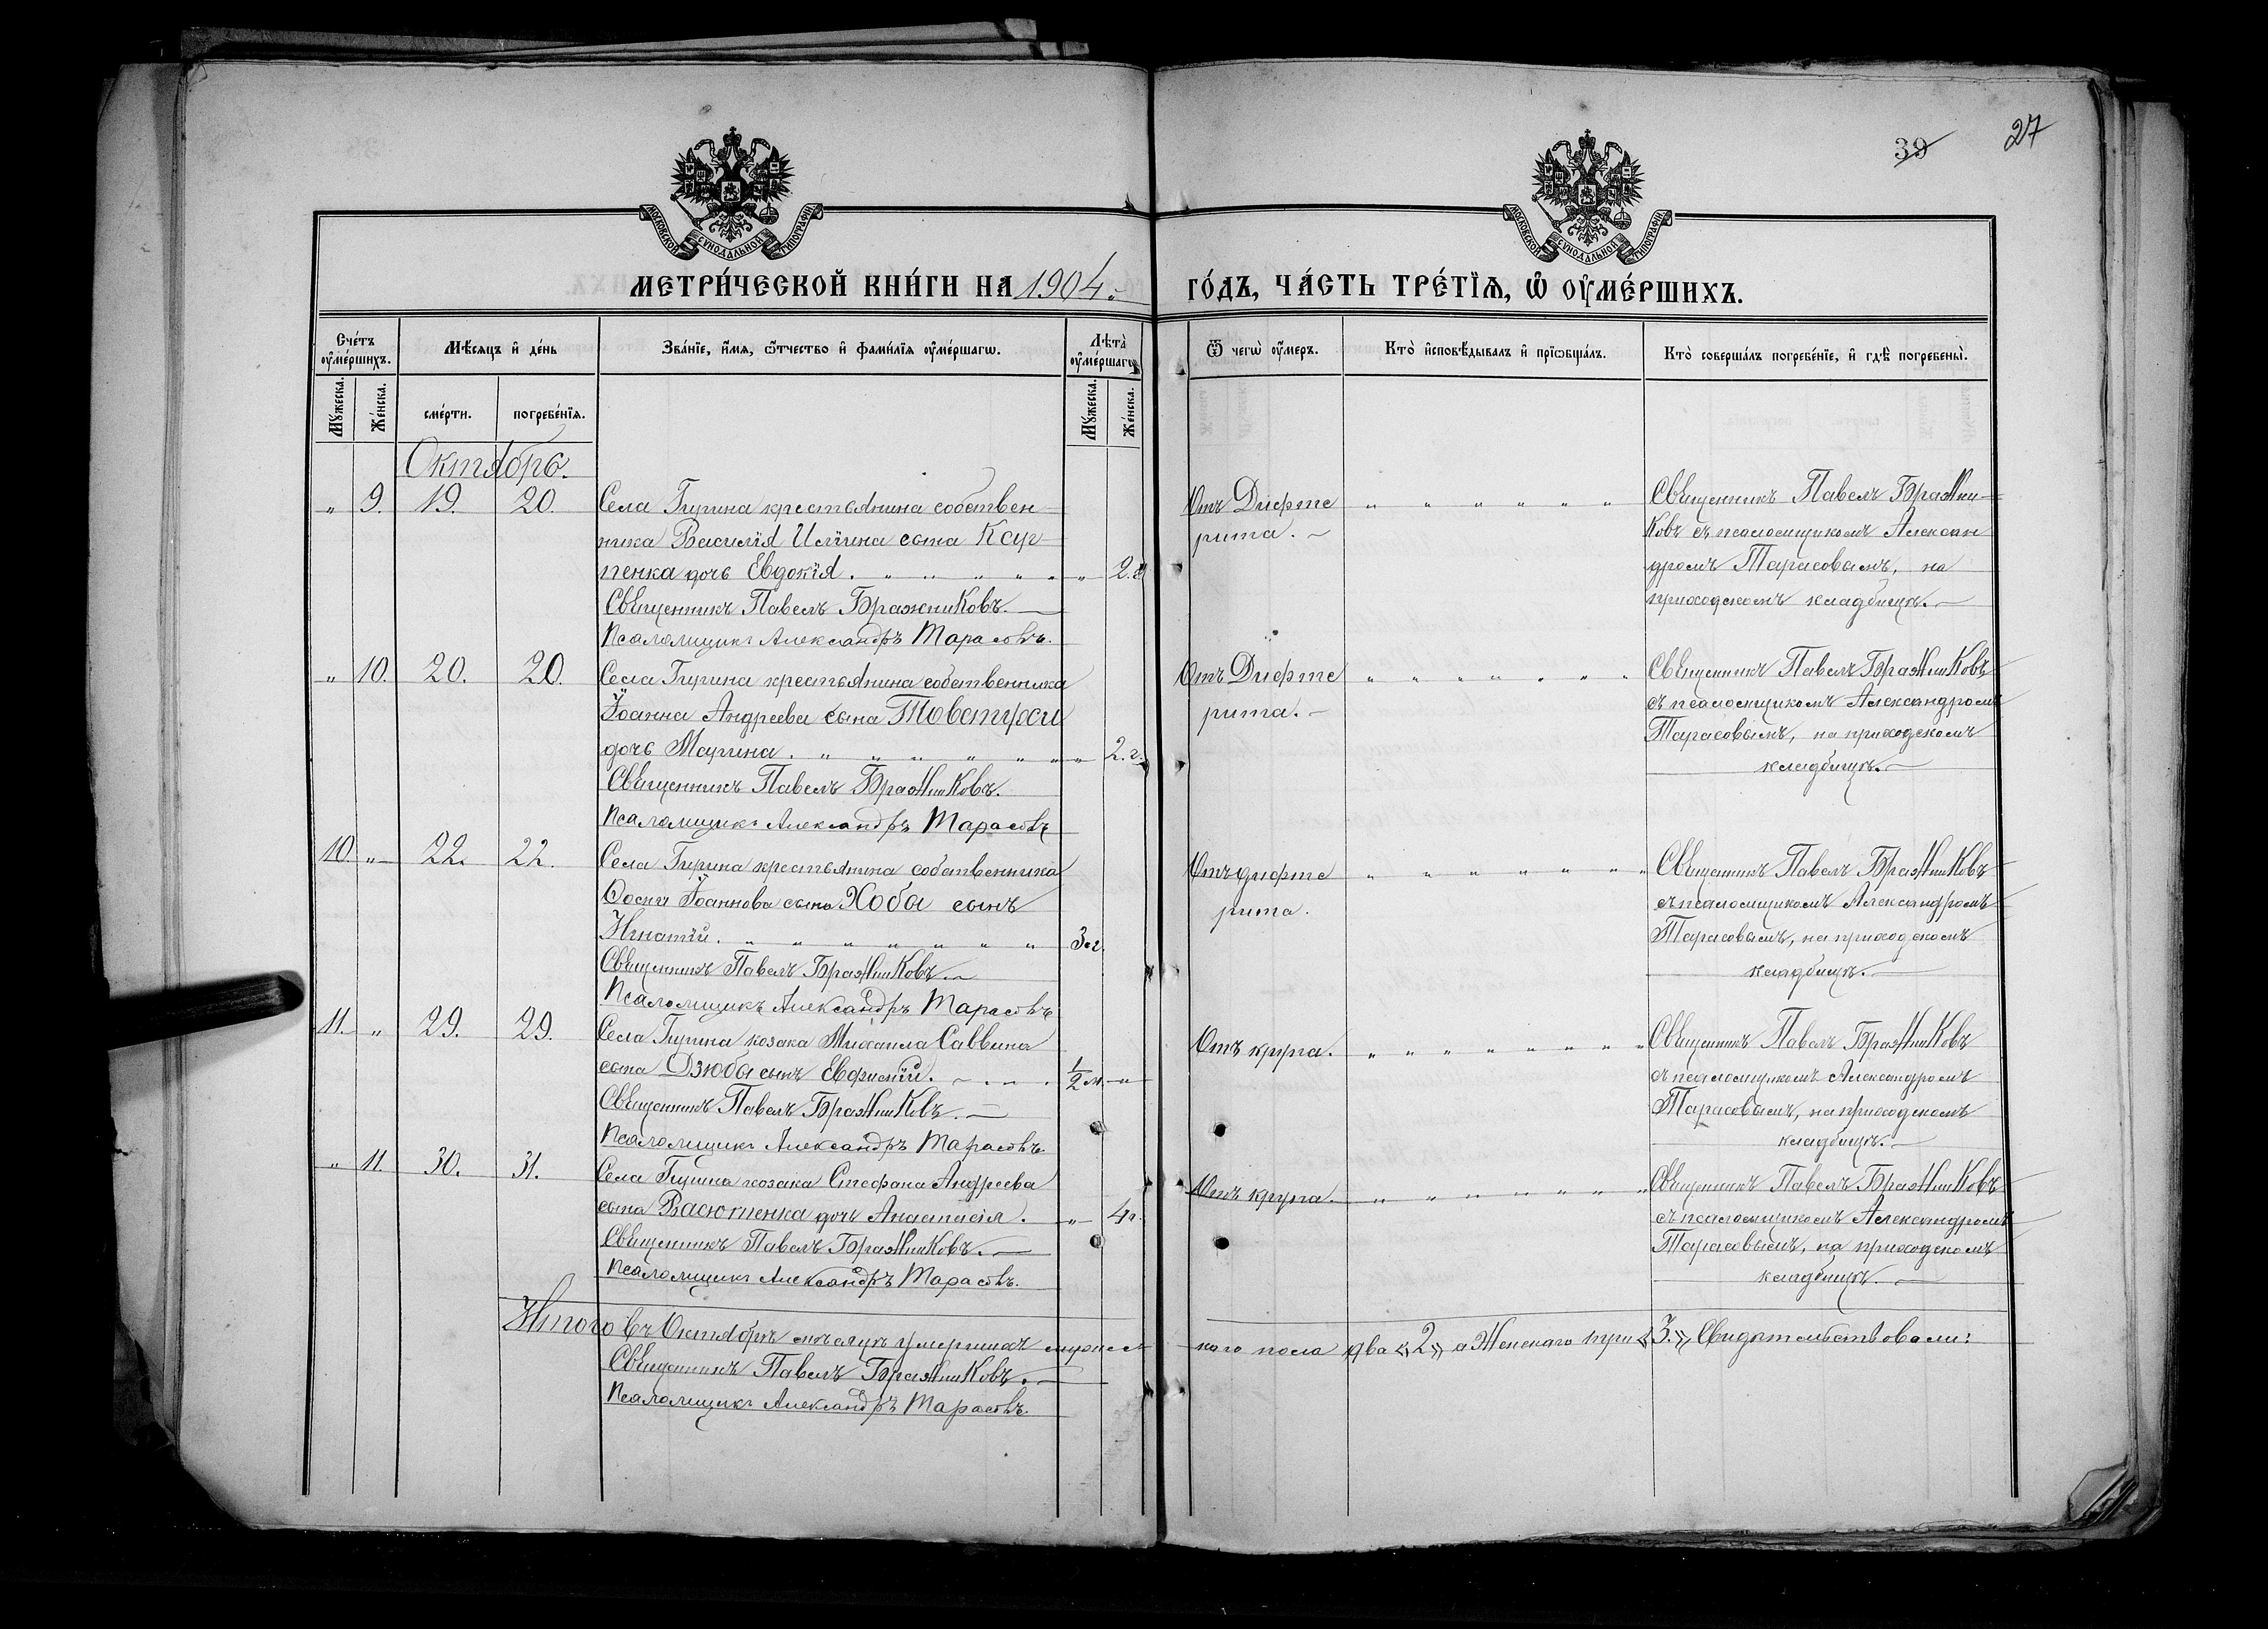 39 27
МОСКОВСКОЙ СУНОДАЛЬНОЙ ТИПОГРАФИИ
МОСКОВСКОЙ СУНОДАЛЬНОЙ ТИПОГРАФИИ
МЕТРИ́ЧЕСКОЙ КНИ́ГИ НА 1904. ГО́ДЪ, ЧА́СТЬ ТРЕ́ТЇѦ, Ѡ҆ ОУ҆МЕ́РШИХЪ.
Сче́тъ оу҆ме́ршихъ.
Мѣ́сяцъ и҆ де́нь
Зва́нїе, и҆́мя, ѻ҆́тчество и҆ фами́лїя оу҆ме́ршагѡ.
Лѣ́та оу҆ме́ршагѡ
Ѿ чегѡ̀ оу҆́меръ.
Кто̀ и҆сповѣ́дывалъ и҆ прїѡбща́лъ.
Кто̀ соверша́лъ погребе́нїе, и҆ гдѣ̀ погребены̀.
Мꙋжеска. Же́нска. сме́рти. погребе́нїя. Мꙋжеска. Же́нска.
Октябрь.
" 9. 19. 20. Села Гирина крестьянина собствен-
ника Василія Иліина сына Кар-
пенка дочь Евдокія. " 2. г.
Священникъ Павелъ Бражниковъ.
Псаломщикъ Александръ Тарасовъ.
Отъ Дифте
рита.
Священникъ Павелъ Бражни-
ковъ съ псаломщикомъ Алексан
дромъ Тарасовымъ, на
приходскомъ кладбищѣ.
" 10. 20. 20. Села Гирина крестьянина собственника
Іоанна Андреева сына Товстухи
дочь Марина. " 2. г.
Священникъ Павелъ Бражниковъ.
Псаломщикъ Александръ Тарасовъ
Отъ Дифте
рита.
Священникъ Павелъ Бражниковъ
съ псаломщикомъ Александромъ
Тарасовымъ, на приходскомъ
кладбищѣ.
10. " 22. 22. Села Гирина крестьянина собственника
Іоаннова сына Хобы сынъ
Игнатій. 3 г.
Священникъ Павелъ Бражниковъ.
Псаломщикъ Александръ Тарасовъ
Отъ дифте
рита.
Священникъ Павелъ Бражниковъ
съ псаломщикомъ Александромъ
Тарасовымъ, на приходскомъ
кладбищѣ.
11. " 29. 29. Села Гирина козака Михаила Саввина
сына Дзюбы сынъ 1/2 м. "
Священникъ Павелъ Бражниковъ.
Псаломщикъ Александръ Тарасовъ.
Отъ крупа.
Священникъ Павелъ Бражниковъ
съ псаломщикомъ Александромъ
Тарасовымъ, на приходскомъ
кладбищѣ.
" 11. 30. 31. Села Гирина козака Стефана Андреева
сына Васютенка дочь Анастасія. " 4 г.
Священникъ Павелъ Бражниковъ.
Псаломщикъ Александръ Тарасовъ.
Отъ крупа.
Священникъ Павелъ Бражниковъ
съ псаломщикомъ Александромъ
Тарасовымъ, на приходскомъ
кладбищѣ.
Итого въ Октябрѣ мѣсяцѣ умершихъ мужес- каго пола два «2» а Женскаго три «3.» Свидѣтельствовали:
Священникъ Павелъ Бражниковъ.
Псаломщикъ Александръ Тарасовъ.